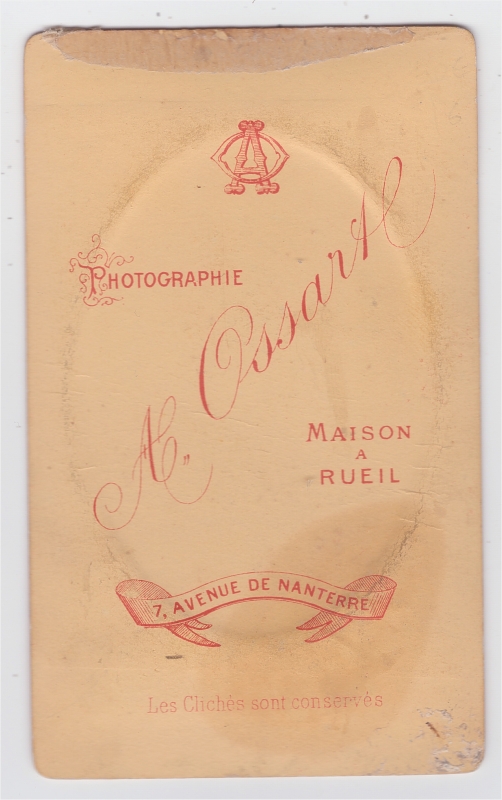 AO
PHOTOGRAPHIE
A. Ossart
MAISON
A
RUEIL
7, AVENUE DE NANTERRE
Les Clichés sont conservés